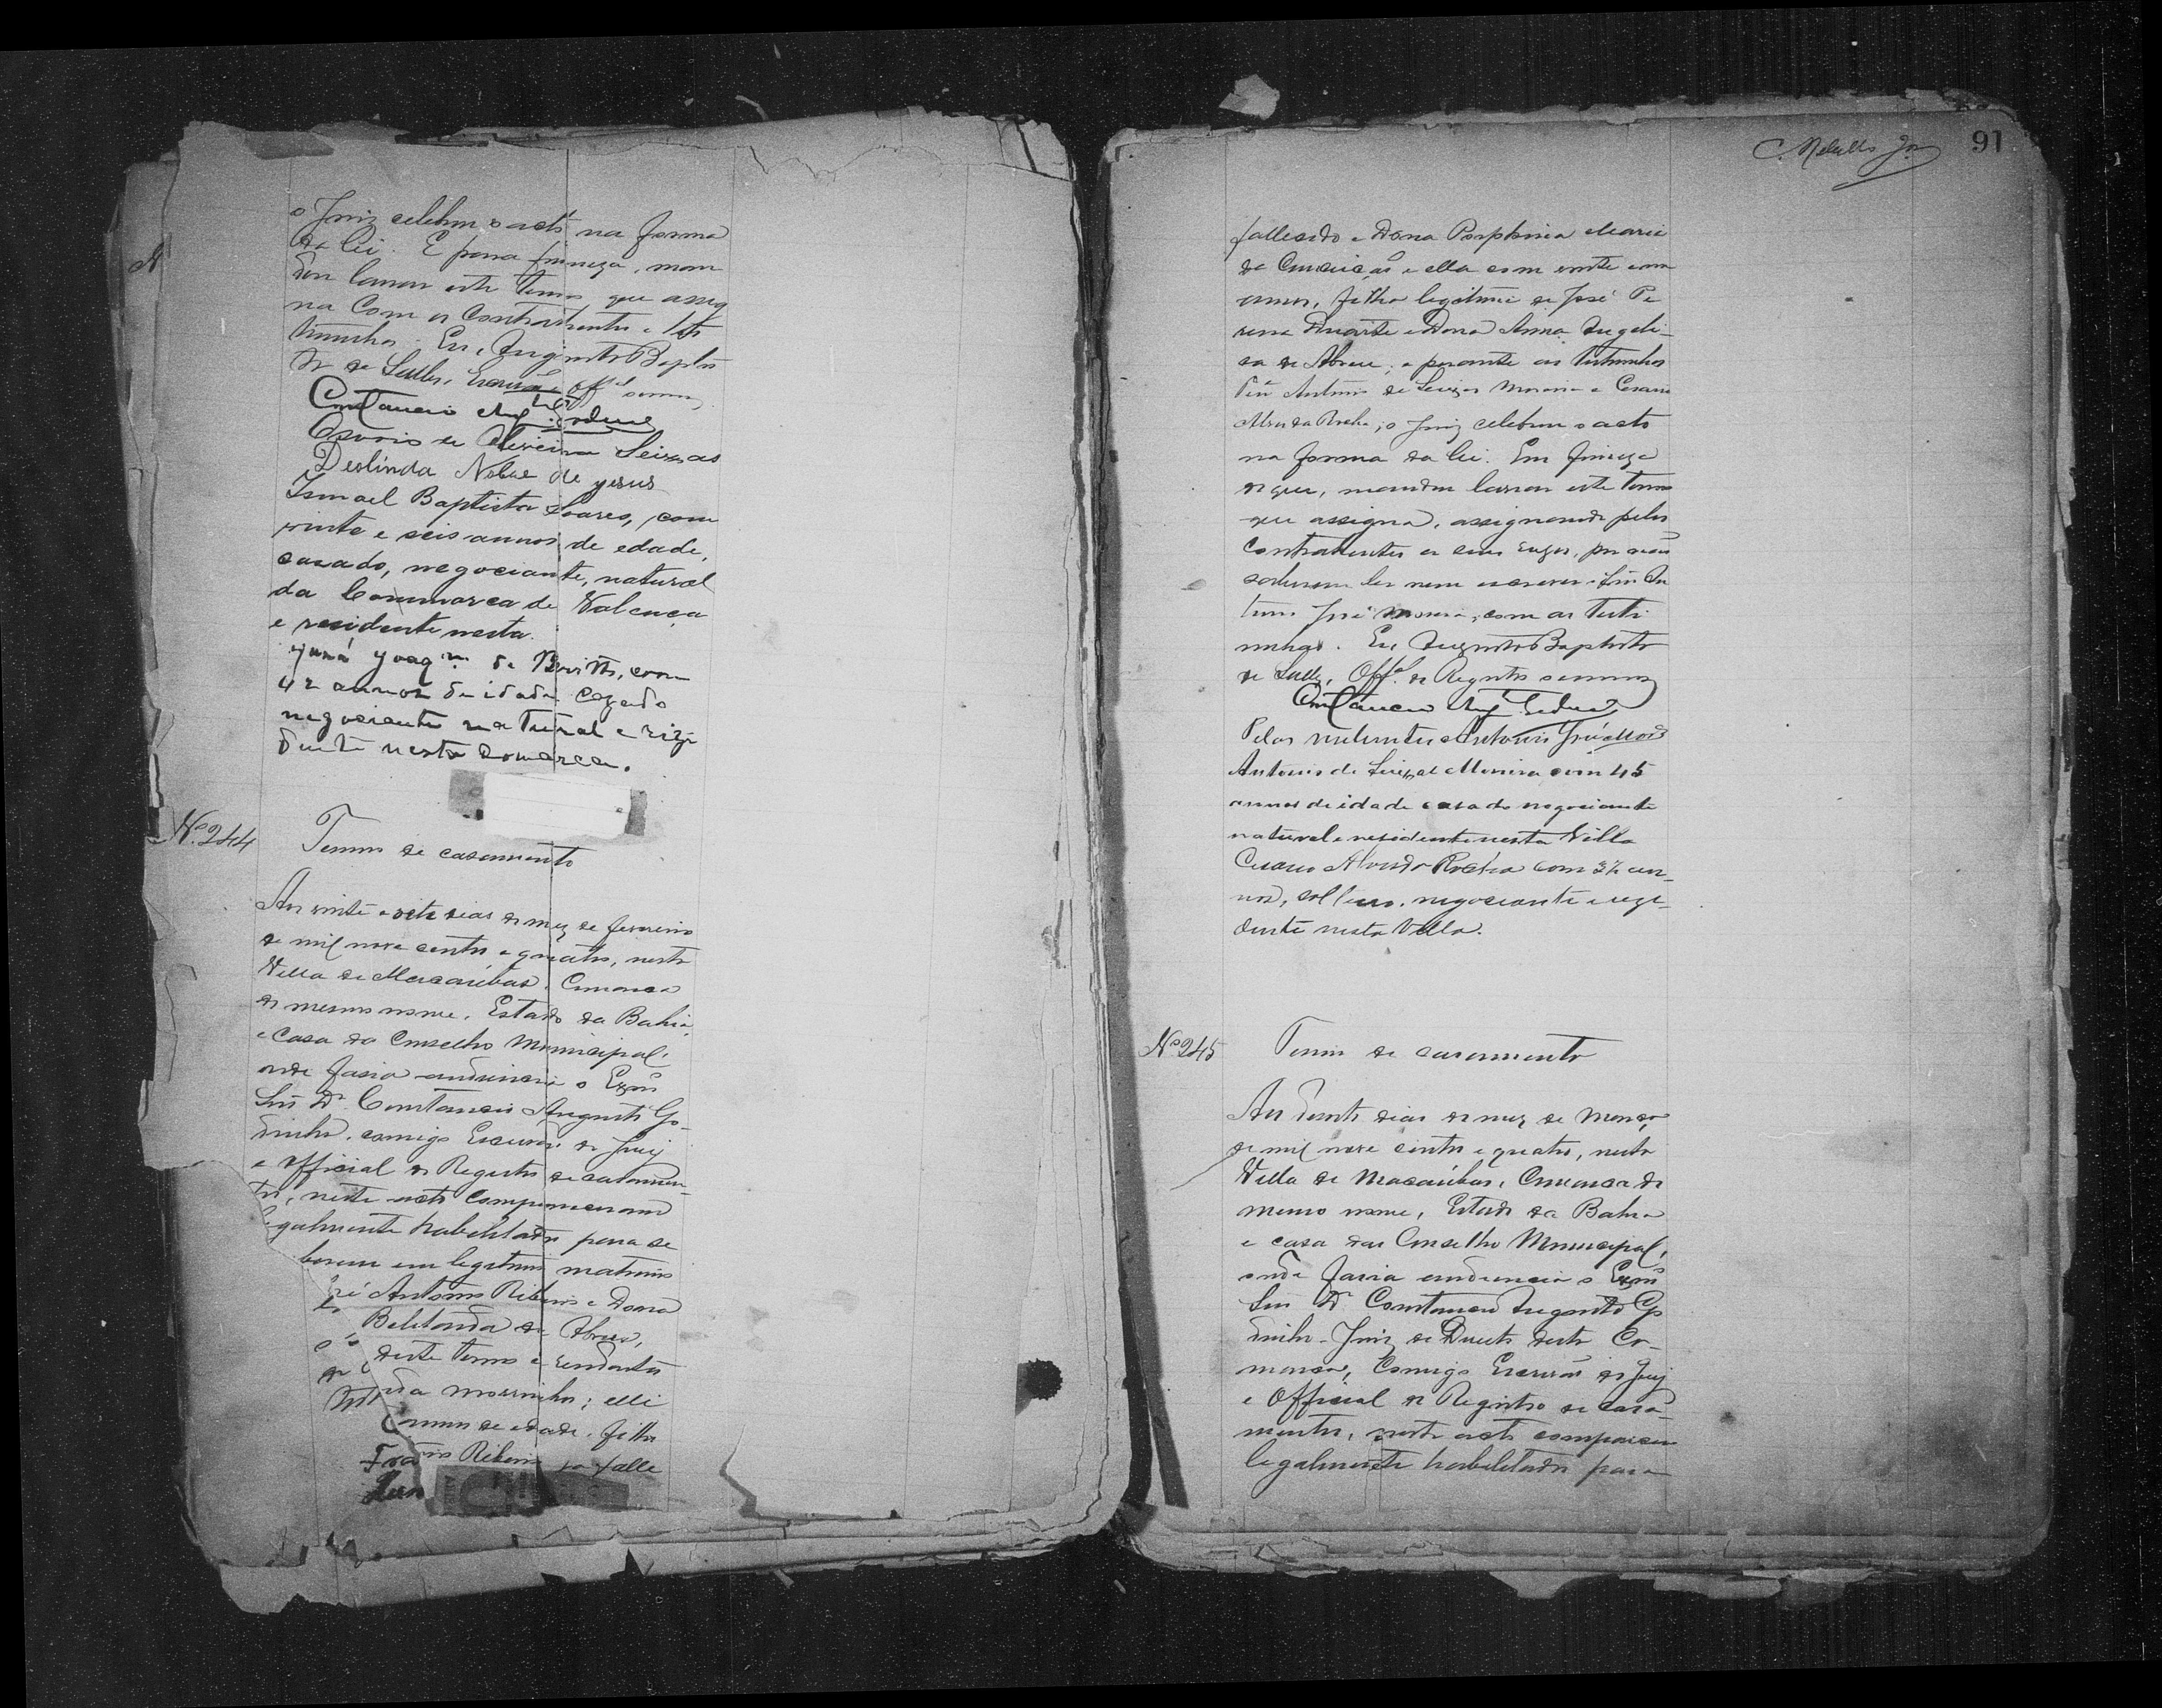 o Juiz celebrou o acto na forma
da lei. E para firmeza, man
dou lavrar este termo, que assig
na com os contrahentes e tes
timunhas. Eu, Augusto Baptis
ta de Escrivão e Offal
Constancio Augto Godinho
Osorio de Oliveira Seixas
Deolinda Nobre de yesus
Ismael Baptista Soares, com
vinte e seis annos de edade,
casado, negociante, natural
da Commarca de Valença
e residente nesta.
yosé yoaqm de Britto, com
42 annos de idade cazado
negociante natural e rizi
dente nesta comarca.
No. 244
Termo de casamento
Aos vinte e oito dias do mez de fevereiro
de mil nove centos e quatro, nesta
Villa de Macaúbas, Comarca
do mesmo nome, Estado da Bahia,
e casa do Conselho Municipal,
onde fasia audiencia o Exmo
Snr Dr Constancio Augusto Go-
dinho, comigo Escrivão do Juiz
e Official do Registro de casamen-
tos, neste acto compareceram
legalmente habelitados para se
em legitimo matrimo
Antonio Ribeiro e Dona
de Abreu,
deste termo e
elle
annos de edade, filho
Fran Ribeiro ja falle
91
fallecido e Dona Porphiria Maria
da Conceição e ella com vinte e um
annos, filha legitima de José Pe
reira Duarte e Dona Anna Angeli-
ca de Abreu; e perante as testimunhas
Antonio de Seixas Moreira e Cesario
Alves da Rocha; o Juiz celebrou o acto
na forma da lei. Em firmeza
do que, mandou lavrar este termo
que assigna, assignando pelos
contrahentes a seus rogos, por não
saberem ler nem escrever An
tonio José com as testi
munhas. Eu Augusto Baptista
de Offal do Registro
Constancio Augto Godinho
Pelos nubentes Antonio José
Antonio de Seixas Moreira com 45
annos de idade casado negociante
natural e residente nesta Villa
Cesario Alves da Rocha com an-
nos, solteiro, negociante e rezi-
dente nesta Villa.
No 245
Termo de casamento
Aos dias do mez de Março
de mil nove centos e quatro, nesta
Villa de Macaúbas, Comarca do
mesmo nome, Estado da Bahia
e casa do Conselho Municipal,
onde fasia audiencia o Exmo
Snr Dr Constancio Augusto Go
dinho, Juiz de Direito desta Co-
marca, Comigo Escrivão do Juiz
e Official do Registro de casa-
mentos, neste acto
legalmente habelitados para